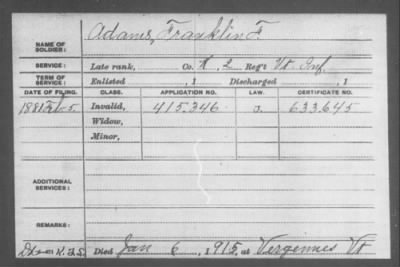 NAME OF SOLDIER: Adams, Franklin F
SERVICE: Late rank, Co. K, 2 Reg't Vt Inf.
TERM OF SERVICE: Enlisted , 1 Discharged , 1
DATE OF FILING. CLASS. APPLICATION NO. LAW. CERTIFICATE NO.
1881 Feb 5 Invalid, 415.346 633.645
Widow,
Minor,
ADDITIONAL SERVICES:
REMARKS:
Died Jan 6, 1915, at Vergennes Vt